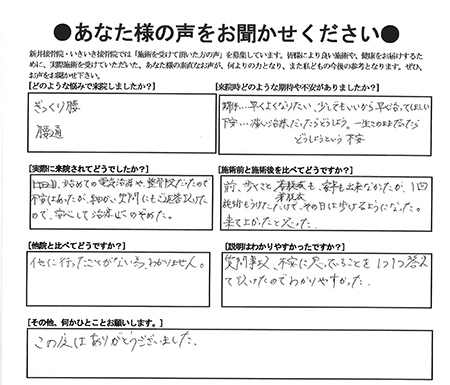 ●あなた様の声をお聞かせください●
新井接骨院・いきいき接骨院では「施術を受けて頂いた方の声」を募集しています。皆様により良い施術や、健康をお届けするため
に、実際施術を受けていただいた、あなた様の素直なお声が、何よりの力となり、また私どもの今後の参考となります。ぜひ、
お声をお聞かせ下さい。
[どのような悩みで来院しましたか？]
ぎっくり腰
腰痛
[来院時どのような期待や不安がありましたか？]
期待…早くよくなりたい、少しでもいいから早く治ってほしい
不安…痛い治療だったらどうしよう。一生このままだったら
どうしようという不安
[実際に来院されてどうでしたか？]
1回目、始めての電気治療や、整骨院だったので
不安はあったが、細かい質問にもご返答頂けた
ので、安心して治療にのぞめた。
[施術前と施術後を比べてどうですか？]
前、歩くことも、着替えも出来なかったが、1回
施術をうけただけで、その日は歩けるようになった。
来てよかったと思った。
[他院と比べてどうですか？]
他に行ったことがない為、わかりません。
[説明はわかりやすかったですか？]
質問事項、不安に思っていることを1つ1つ答え
て頂けたのでわかりやすかった。
[その他、何かひとことお願いします。]
この度はありがとうございました。